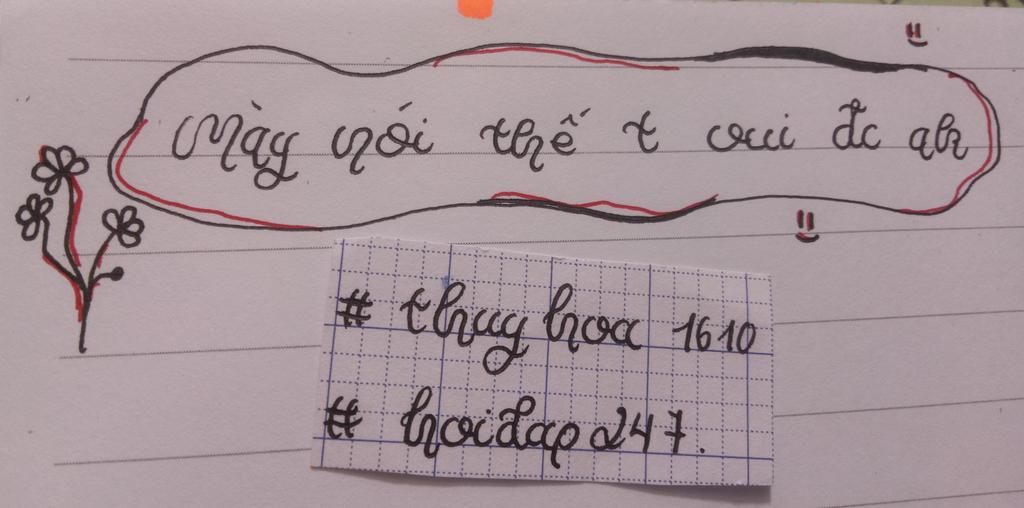 Mày nói thế t vui đc ah
# thuyhoa 1610
# hoidap247.